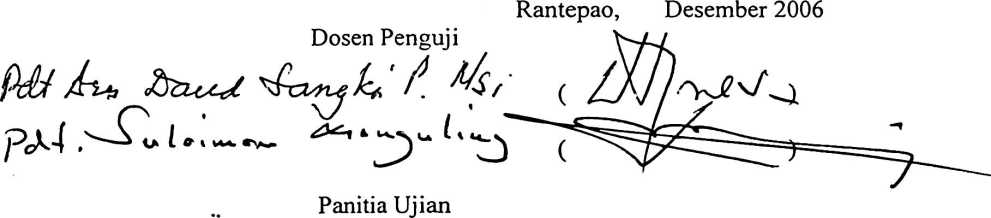 Rantepao, Desember 2006
Dosen Penguji
Pdt Drs Daud Sangka' P. Msi (
Pdt. Sulaiman Manguling ( )
Panitia Ujian